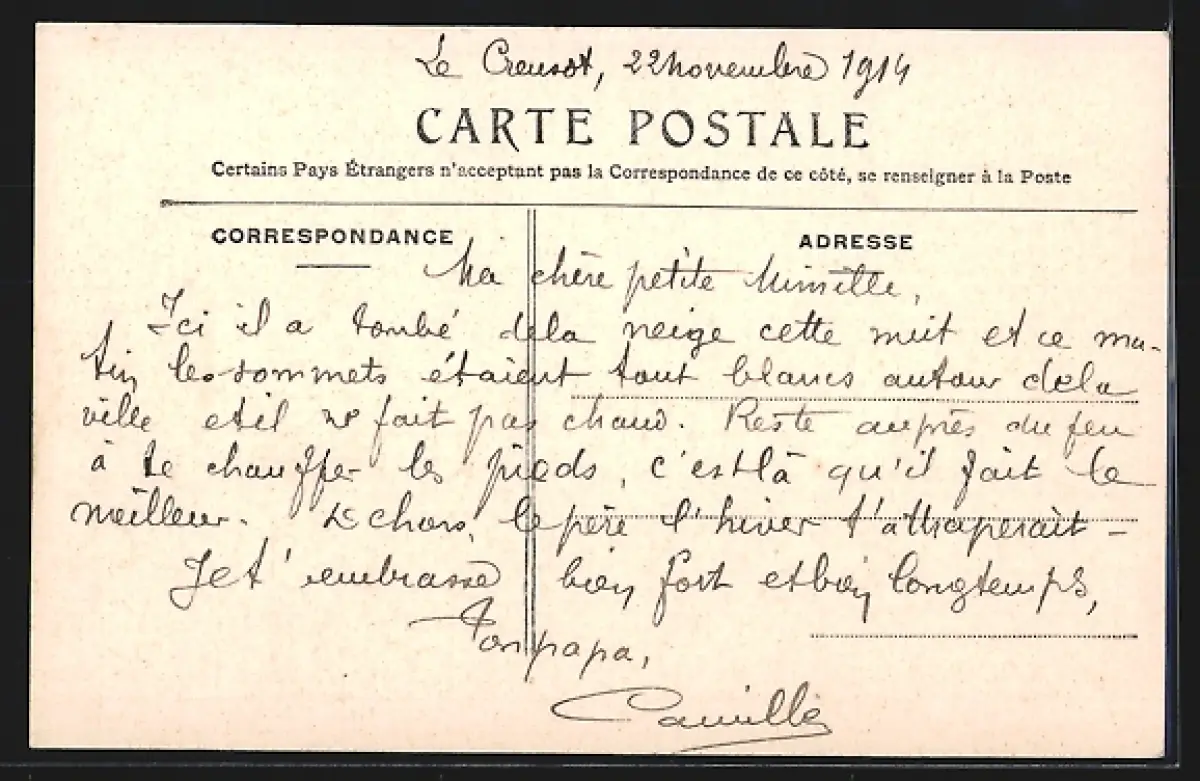 Le Creusot, 22 novembre 1914
CARTE POSTALE
Certains Pays Étrangers n'acceptant pas la Correspondance de ce côté, se renseigner à la Poste
CORRESPONDANCE
ADRESSE
Ma chère petite Mimille,
Ici il a tombé de la neige cette nuit et ce ma-
tin, les sommets étaient tout blancs autour de la
ville et il ne fait pas chaud. Reste auprès du feu
à te chauffer les pieds, c'est là qu'il fait le
meilleur. Dehors, le père l'hiver t'attraperait –
Je t'embrasse bien fort et bien longtemps,
Ton papa,
Camille